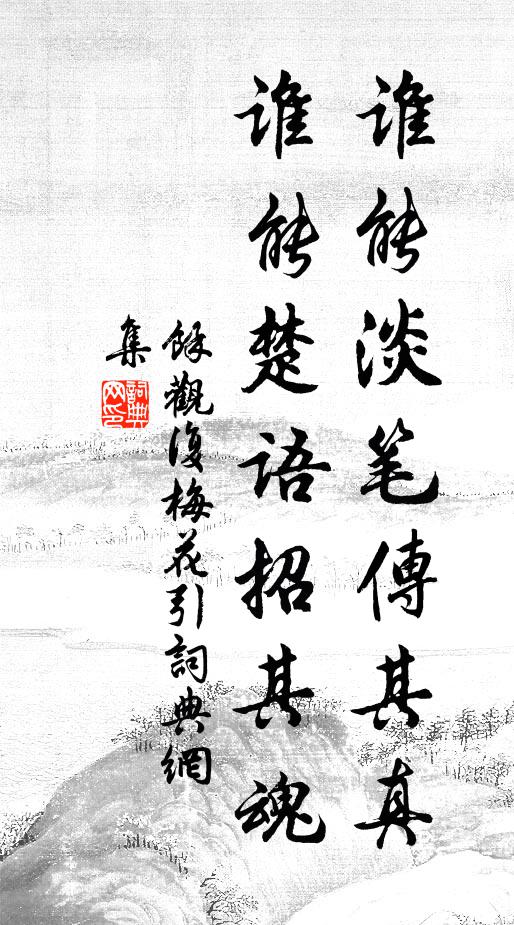 谁能淡笔傳其真
谁能楚语招其魂
餘觀復梅花引詞典網
集
詞典網印